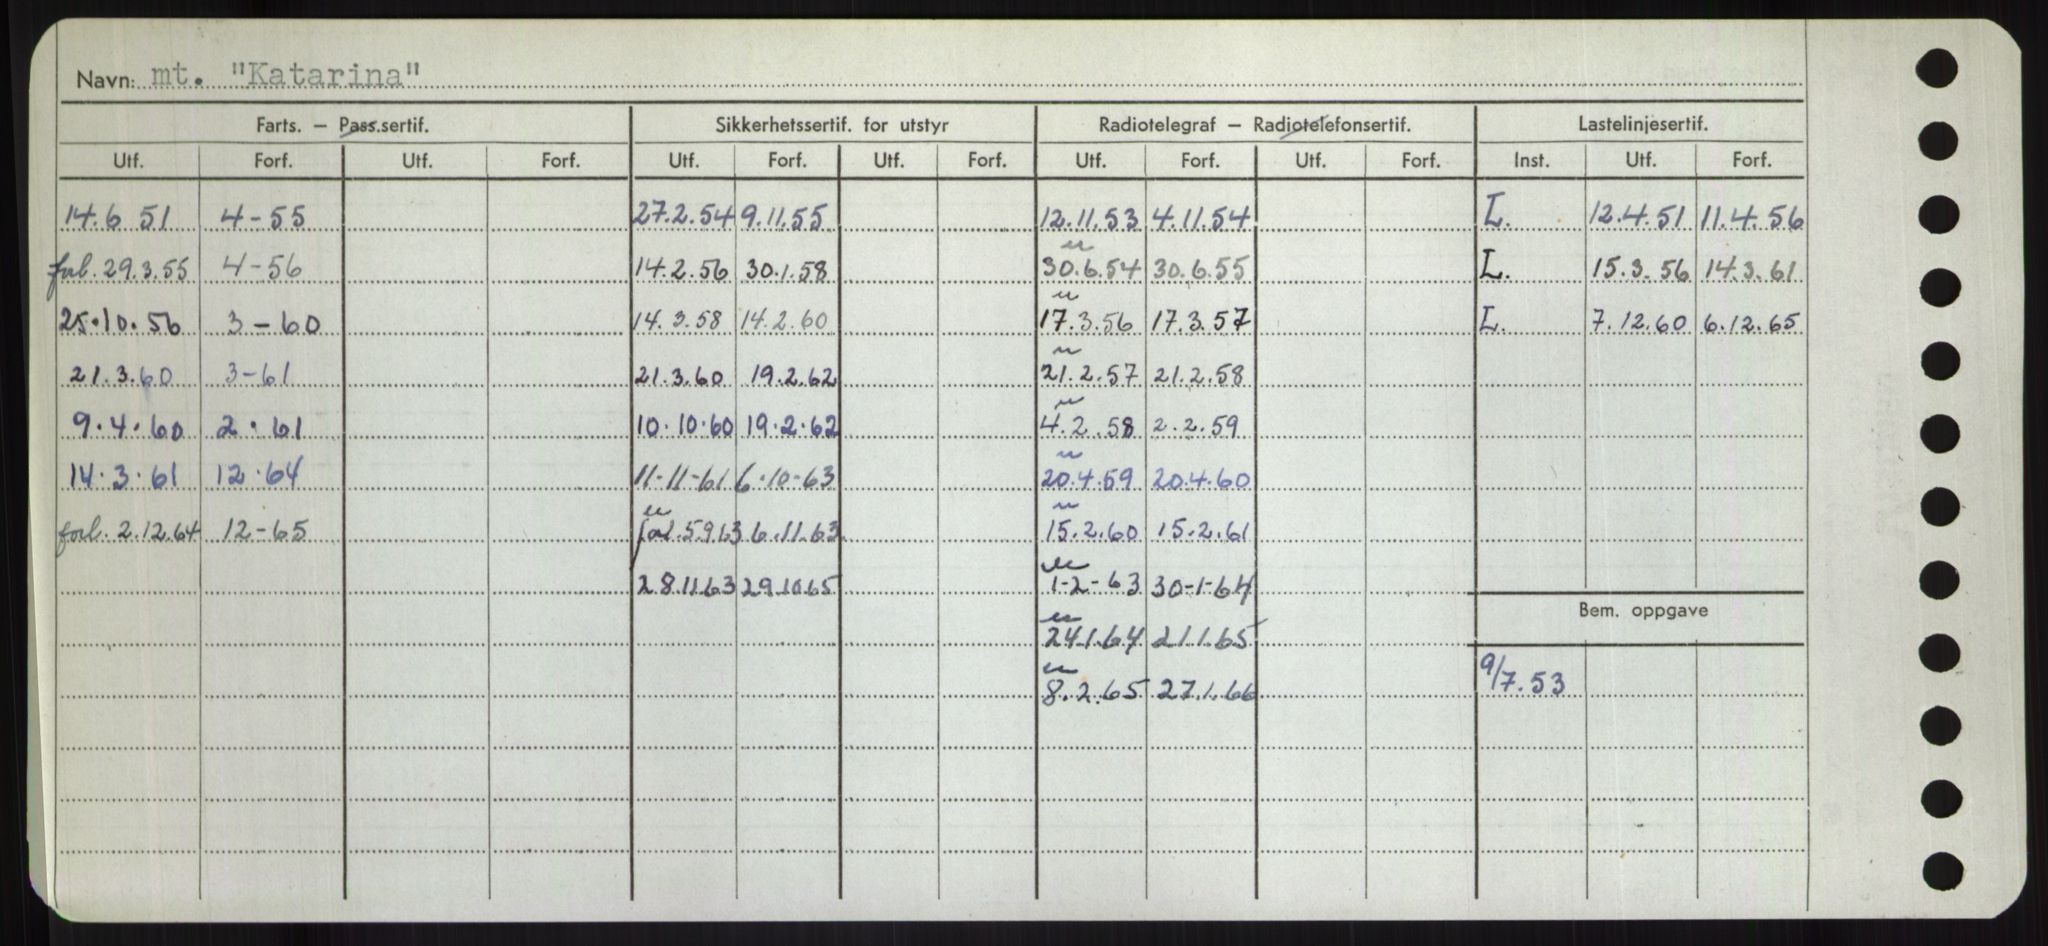 Navn: mt. "Katarina"
Farts. – Pass.sertif. Sikkerhetssertif. for utstyr Radiotelegraf – Radiotelefonsertif. Lastelinjesertif.
Utf. Forf. Utf. Forf. Utf. Forf. Utf. Forf. Utf. Forf. Utf. Forf. Inst. Utf. Forf.
14.6 51 4-55 27.2.54 9.11.55 12.11.53 4.11.54 L. 12.4.51 11.4.56
forl. 29.3.55 4-56 14.2.56 30.1.58 30.6.54 30.6.55 L. 15.3.56 14.3.61
25.10.56 3-60 14.3.58 14.2.60 17.3.56 17.3.57 L. 7.12.60 6.12.65
21.3.60 3-61 21.3.60 19.2.62 21.2.57 21.2.58
9.4.60 2.61 10.10.60 19.2.62 4.2.58 2.2.59
14.3.61 12.64 11-11-61 6-10-63 20.4.59 20.4.60
forl. 2.12.64 12-65 forl. 5.9.63 6.11.63 15.2.60 15.2.61
28.11.63 29.10.65 1-2-63 30-1-64
Bem. oppgave
24.1.64 21.1.65
8.2.65 27.1.66 9/7.53